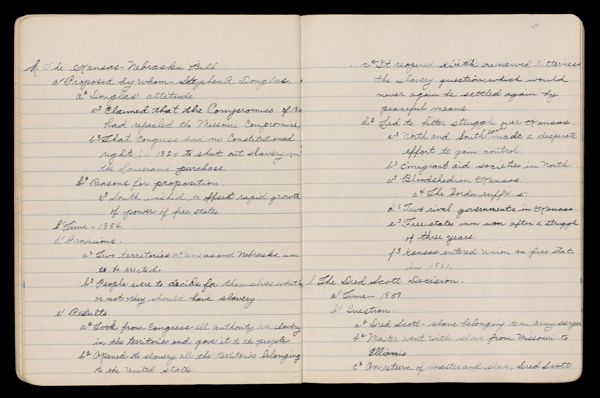 k. The Kansas-Nebraska Bill
a' Proposed by whom - Stephen A. Douglas.
a² Douglas' attitude
a³ Claimed that the Compromise of
had repealed the Missouri Compromise,
b³ That Congress had no Constitutional
right in 1820 to shut out slavery in
the Louisiana purchase.
b² Reasons for proposition
a³ South wished to offset rapid growth
of power of free states
b' Time - 1854.
d' Provisions.
a² Two territories Kansas and Nebraska were
to be erected.
b² People were to decide for themselves whether
or not they should have slavery
e' Results.
a² Took from Congress all authority over slavery
in the territories and gave it to the people
b² Opened to slavery all the territories belonging
to the United States.
c² It reopened with renewed bitterness
the slavery question which would
never again be settled again by
peaceful means.
d² Led to bitter struggle over Kansas.
a³ North and South each made a desperate
effort to gain control.
b³ Emigrant aid societies in North
c³ Bloodshed in Kansas.
a⁴ The border ruffians.
d³ Two rival governments in Kansas
e³ Free states men won after a struggle
of three years.
f³ Kansas entered Union as free state
in 1861.
l. The Dred Scott Decision.
a' Time - 1857
b' Question.
a² Dred Scott - slave belonging to an army surgeon
b² Master went with slave from Missouri to
Illinois
c² On return of master and slave, Dred Scott